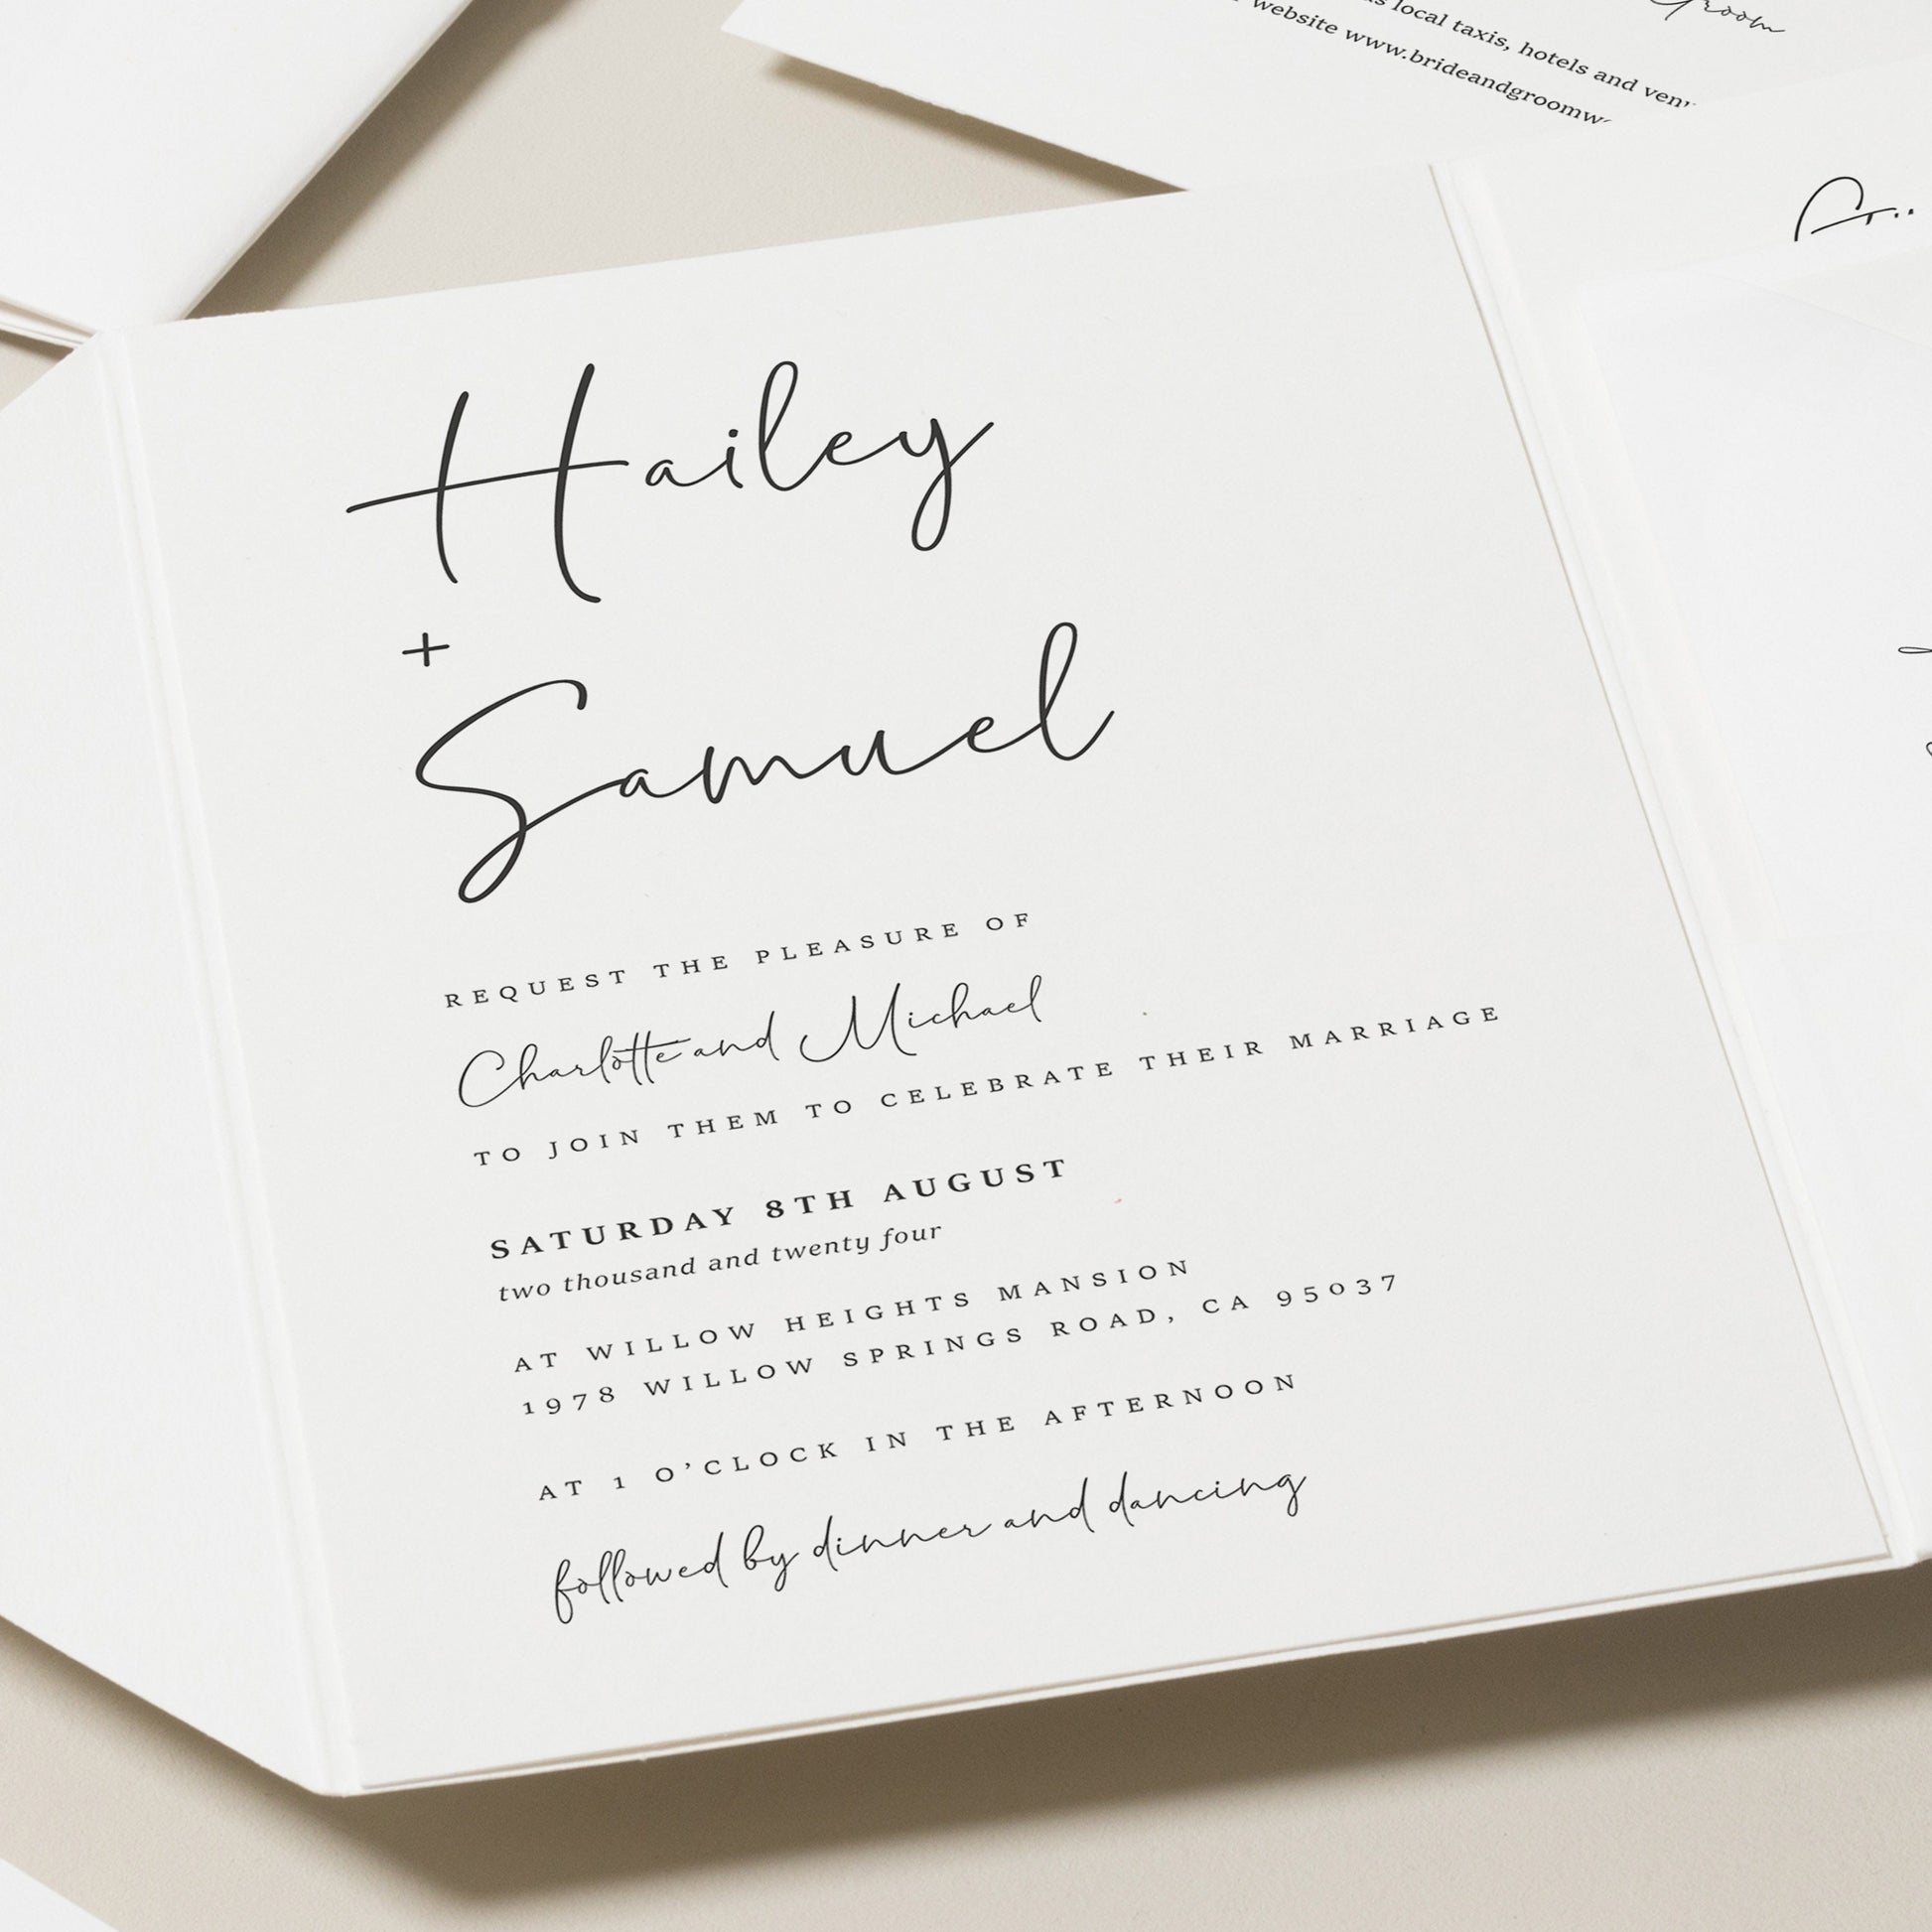 Groom
local taxis, hotels and
website
Hailey
+
Samuel
REQUEST THE PLEASURE OF
Charlotte and Michael
TO JOIN THEM TO CELEBRATE THEIR MARRIAGE
SATURDAY 8TH AUGUST
two thousand and twenty four
AT WILLOW HEIGHTS MANSION
1978 WILLOW SPRINGS ROAD, CA 95037
AT 1 O’CLOCK IN THE AFTERNOON
followed by dinner and dancing